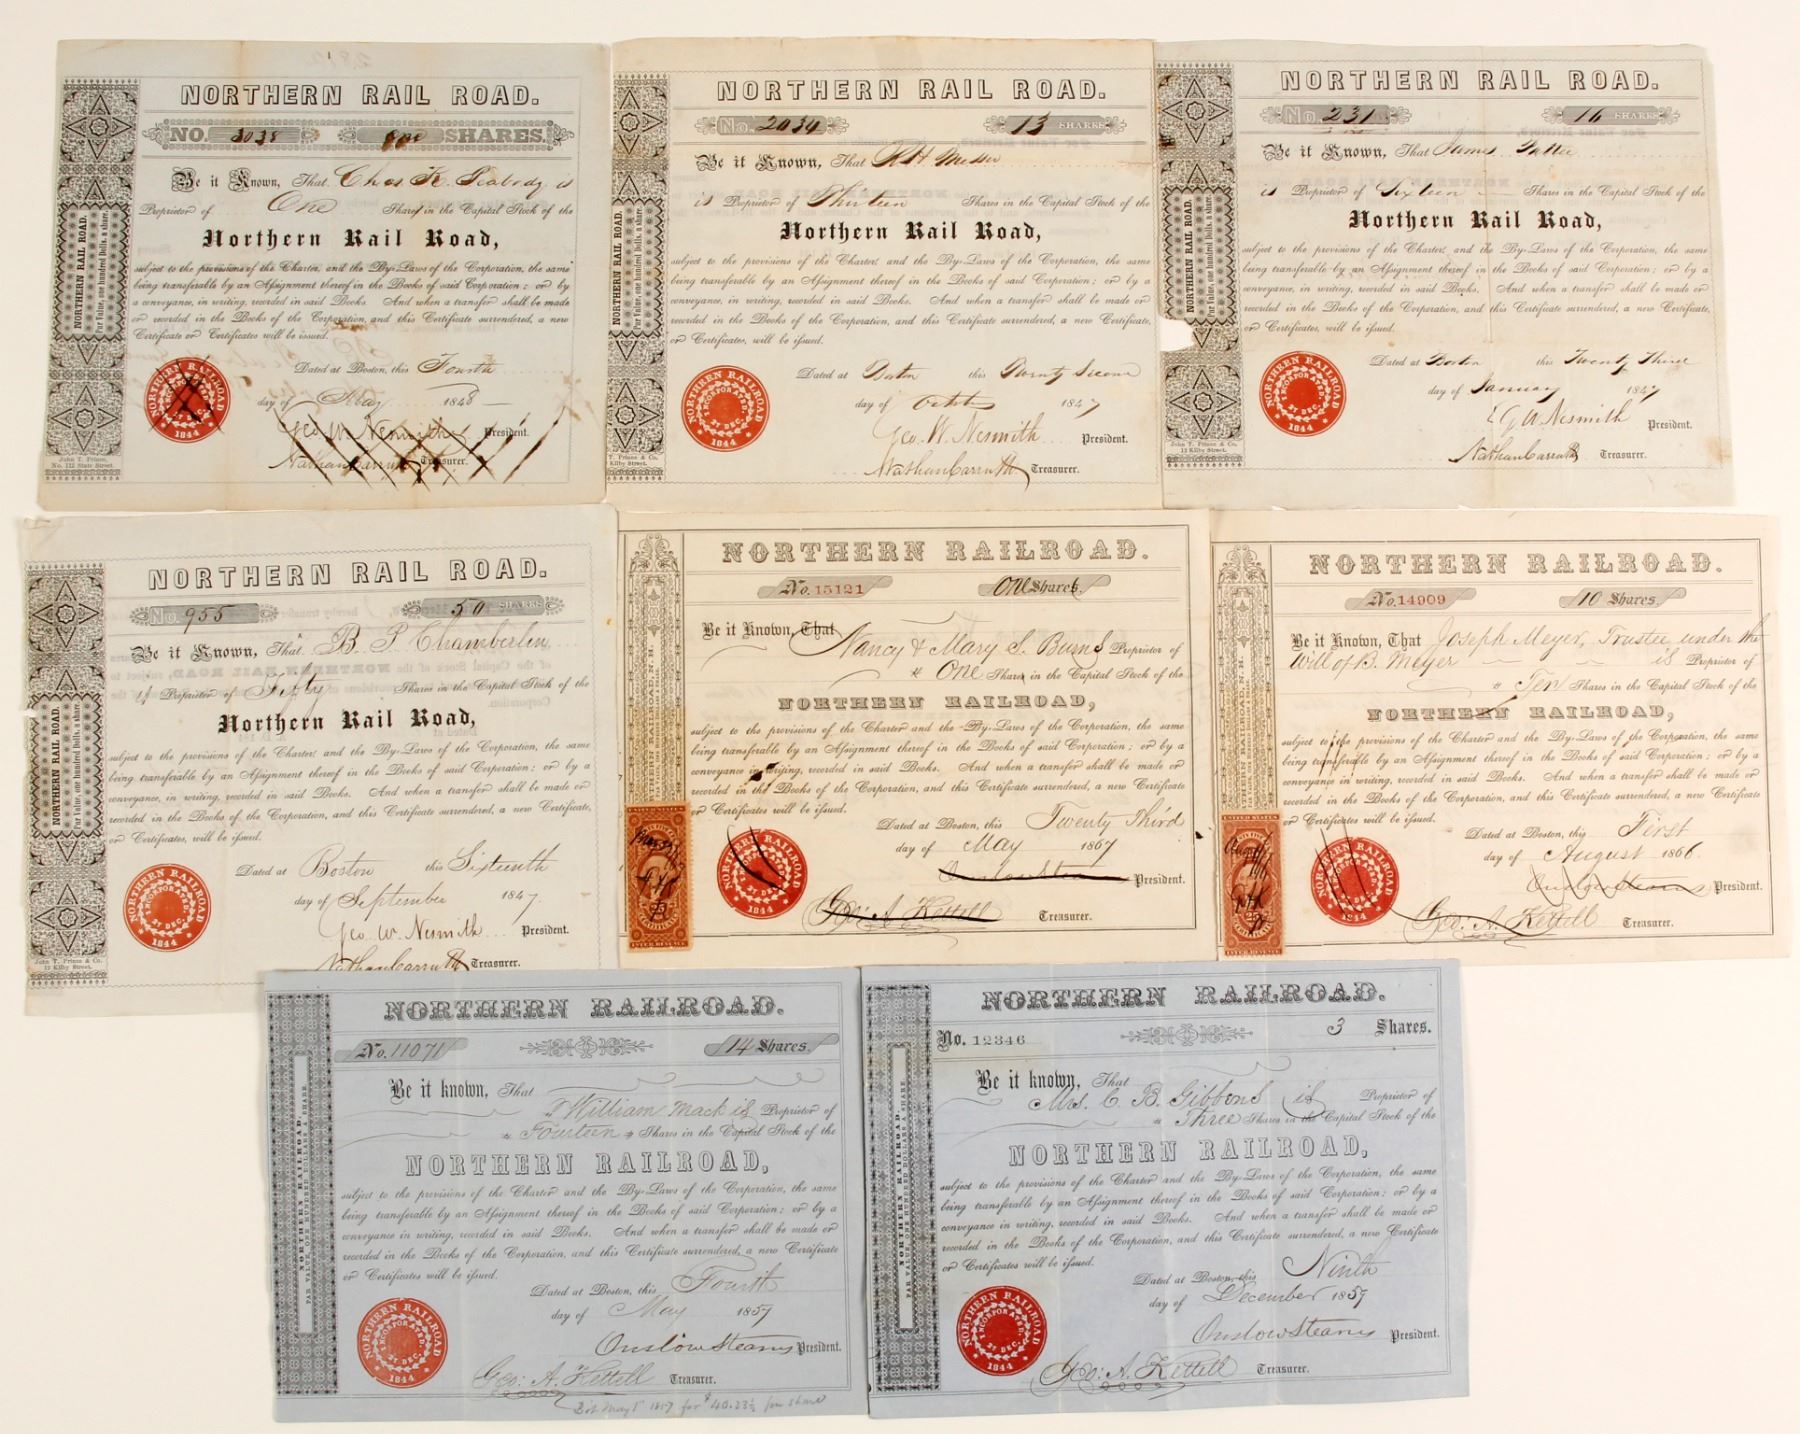 NORTHERN RAIL ROAD.
NO. 3038 One SHARES.
Be it Known, That Chas K. Peabody is
Proprietor of One Shares in the Capital Stock of the
Northern Rail Road,
subject to the provisions of the Charter, and the By-Laws of the Corporation, the same
being transferable by an Assignment thereof in the Books of said Corporation; or by a
conveyance, in writing, recorded in said Books. And when a transfer shall be made
or recorded in the Books of the Corporation, and this Certificate surrendered, a new
Certificate or Certificates will be issued.
Dated at Boston, this Fourth
day of May 1848
Geo. W. Nesmith President.
Nathan Carruth Treasurer.
NORTHERN RAIL ROAD.
Par Value, one hundred Dolls. a share.
NORTHERN RAILROAD
INCORPORATED
27 DEC.
1844
John T. Prince,
No. 112 State Street.
NORTHERN RAIL ROAD.
No. 2034 13 SHARES
Be it Known, That R H Messer
is Proprietor of Thirteen Shares in the Capital Stock of the
Northern Rail Road,
subject to the provisions of the Charter, and the By-Laws of the Corporation, the same
being transferable by an Assignment thereof in the Books of said Corporation; or by a
conveyance, in writing, recorded in said Books. And when a transfer shall be made or
recorded in the Books of the Corporation, and this Certificate surrendered, a new Certificate,
or Certificates, will be issued.
Dated at Boston this Twenty Second
day of October 1847
Geo. W. Nesmith President.
Nathan Carruth Treasurer.
NORTHERN RAIL ROAD.
Par Value, one hundred Dolls. a share.
NORTHERN RAILROAD
INCORPORATED
27 DEC.
1844
T. Prince & Co.
Kilby Street.
NORTHERN RAIL ROAD.
No. 231 16 SHARES
Be it Known, That James Pattee
is Proprietor of Sixteen Shares in the Capital Stock of the
Northern Rail Road,
subject to the provisions of the Charter, and the By-Laws of the Corporation, the same
being transferable by an Assignment thereof in the Books of said Corporation; or by a
conveyance, in writing, recorded in said Books. And when a transfer shall be made or
recorded in the Books of the Corporation, and this Certificate surrendered, a new Certificate,
or Certificates, will be issued.
Dated at Boston this Twenty Third
day of January 1847
G. W. Nesmith President.
Nathan Carruth Treasurer.
NORTHERN RAIL ROAD.
Par Value, one hundred Dolls. a share.
NORTHERN RAILROAD
INCORPORATED
27 DEC.
1844
John T. Prince & Co.
12 Kilby Street.
NORTHERN RAIL ROAD.
No. 955 50 SHARES
Be it Known, That B. P. Chamberlin
is Proprietor of Fifty Shares in the Capital Stock of the
Northern Rail Road,
subject to the provisions of the Charter, and the By-Laws of the Corporation, the same
being transferable by an Assignment thereof in the Books of said Corporation; or by a
conveyance, in writing, recorded in said Books. And when a transfer shall be made or
recorded in the Books of the Corporation, and this Certificate surrendered, a new Certificate,
or Certificates, will be issued.
Dated at Boston this Sixteenth
day of September 1847.
Geo. W. Nesmith President.
Nathan Carruth Treasurer.
NORTHERN RAIL ROAD.
Par Value, one hundred Dolls. a share.
NORTHERN RAILROAD
INCORPORATED
27 DEC.
1844
John T. Prince & Co.
12 Kilby Street.
NORTHERN RAILROAD.
No. 15121 One Shares.
Be it Known, That Nancy & Mary S. Burns Proprietor of
One Shares in the Capital Stock of the
NORTHERN RAILROAD,
subject to the provisions of the Charter and the By-Laws of the Corporation, the same
being transferable by an Assignment thereof in the Books of said Corporation; or by a
conveyance in writing, recorded in said Books. And when a transfer shall be made or
recorded in the Books of the Corporation, and this Certificate surrendered, a new Certificate
or Certificates will be issued.
Dated at Boston, this Twenty Third
day of May 1867
Onslow Stearns President.
Geo: A. Kettell Treasurer.
NORTHERN RAILROAD, N.H.
NORTHERN RAILROAD
1844
INTER. REVENUE
NORTHERN RAILROAD.
No. 14909 10 Shares.
Be it Known, That Joseph Meyer, Trustee under the
Will of B. Meyer is Proprietor of
Ten Shares in the Capital Stock of the
NORTHERN RAILROAD,
subject to the provisions of the Charter and the By-Laws of the Corporation, the same
being transferable by an Assignment thereof in the Books of said Corporation; or by a
conveyance in writing, recorded in said Books. And when a transfer shall be made or
recorded in the Books of the Corporation, and this Certificate surrendered, a new Certificate
or Certificates will be issued.
Dated at Boston, this First
day of August 1866.
Onslow Stearns President.
Geo. A. Kettell Treasurer.
NORTHERN RAILROAD, N.H.
NORTHERN RAILROAD
1844
INTER. REVENUE
NORTHERN RAILROAD.
No. 11071 14 Shares.
Be it known, That
William Mack is Proprietor of
Fourteen Shares in the Capital Stock of the
NORTHERN RAILROAD,
subject to the provisions of the Charter and the By-Laws of the Corporation, the same
being transferable by an Assignment thereof in the Books of said Corporation; or by a
conveyance in writing, recorded in said Books. And when a transfer shall be made or
recorded in the Books of the Corporation, and this Certificate surrendered, a new Certificate
or Certificates will be issued.
Dated at Boston, this Fourth
day of May 1857
Onslow Stearns President.
Geo: A. Kettell Treasurer.
Bot May 1 1857 for $40.23½ per share
NORTHERN RAILROAD.
PAR VALUE, ONE HUNDRED DOLLARS A SHARE.
NORTHERN RAILROAD
INCORPORATED.
27 DEC.
1844
NORTHERN RAILROAD.
No. 12346 3 Shares.
Be it known, That
Mrs. C. B. Gibbons is Proprietor of
Three Shares in the Capital Stock of the
NORTHERN RAILROAD,
subject to the provisions of the Charter and the By-Laws of the Corporation, the same
being transferable by an Assignment thereof in the Books of said Corporation; or by a
conveyance in writing, recorded in said Books. And when a transfer shall be made or
recorded in the Books of the Corporation, and this Certificate surrendered, a new Certificate
or Certificates will be issued.
Dated at Boston this Ninth
day of December 1857
Onslow Stearns President.
Geo: A. Kettell Treasurer.
NORTHERN RAILROAD.
PAR VALUE, ONE HUNDRED DOLLARS A SHARE
NORTHERN RAILROAD
INCORPORATED.
27 DEC.
1844